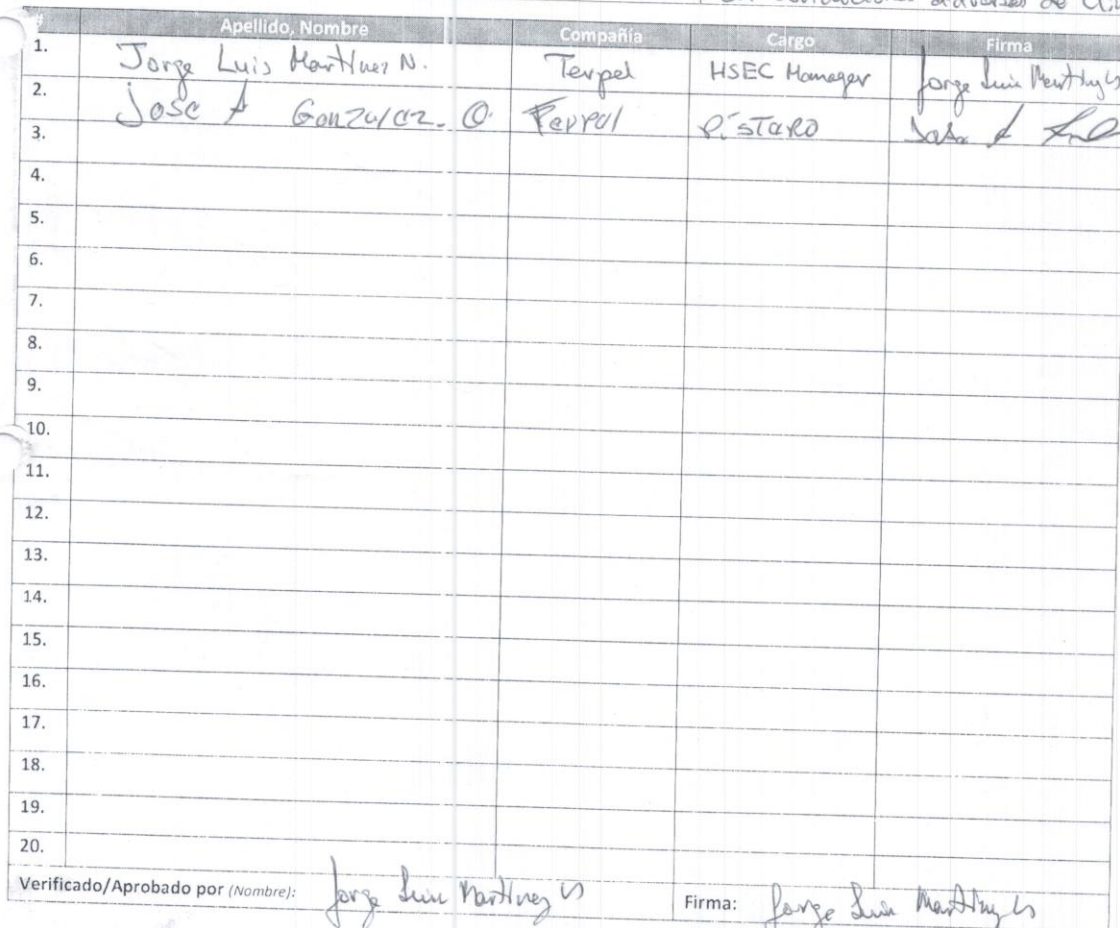 adversas de
# Apellido, Nombre Compañía Cargo Firma
1. Jorge Luis Martinez N. Terpel HSEC Manager Jorge Luis Martinez N
2. Jose A Gonzalez. O. Terpel PistaRO Jose A
3.
4.
5.
6.
7.
8.
9.
10.
11.
12.
13.
14.
15.
16.
17.
18.
19.
20.
Verificado/Aprobado por (Nombre): Jorge Luis Martinez N Firma: Jorge Luis Martinez N